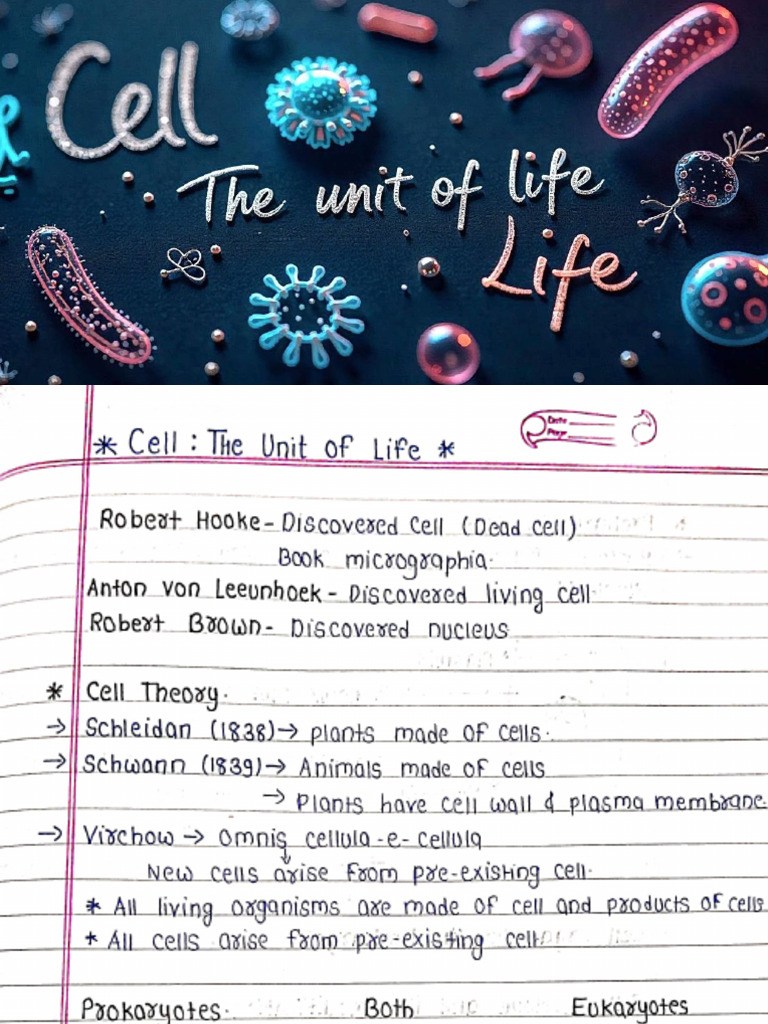 Cell
The unit of life
Life
Date
Page
* Cell : The Unit of Life *
Robert Hooke - Discovered Cell (Dead cell)
Book micrographia.
Anton von Leeunhoek - Discovered living cell
Robert Brown - Discovered nucleus
* Cell Theory.
→ Schleidan (1838) → plants made of cells.
→ Schwann (1839) → Animals made of cells
→ Plants have cell wall & plasma membrane.
→ Virchow → Omnis cellula-e-cellula
↓
New cells arise from pre-existing cell.
* All living organisms are made of cell and products of cells
* All cells arise from pre-existing cell.
Prokaryotes. Both Eukaryotes